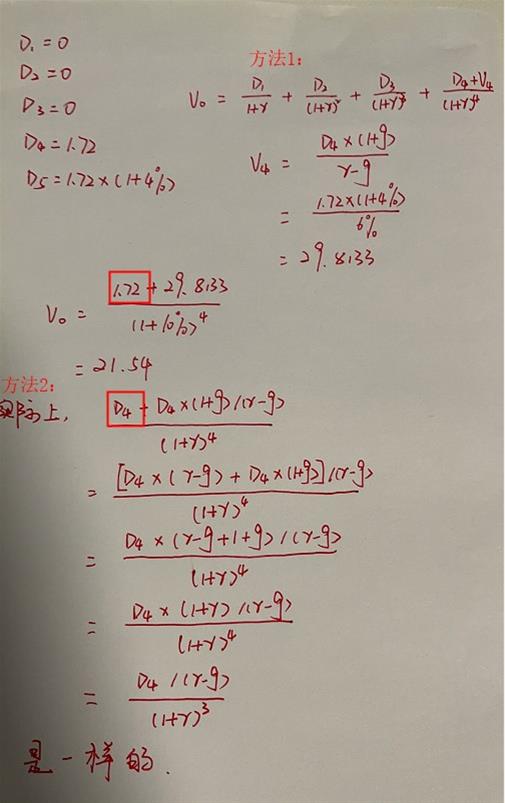 D₁ = 0
D₂ = 0
D₃ = 0
D₄ = 1.72
D₅ = 1.72 × (1+4%)
方法1:
V₀ = D₁/(1+r) + D₂/(1+r)² + D₃/(1+r)³ + (D₄+V₄)/(1+r)⁴
V₄ = D₄×(1+g)/(r-g)
= 1.72×(1+4%)/6%
= 29.8133
V₀ = (1.72 + 29.8133)/(1+10%)⁴
= 21.54
方法2:
实际上, [D₄ + D₄×(1+g)/(r-g)]/(1+r)⁴
= [D₄×(r-g) + D₄×(1+g)]/(r-g)/(1+r)⁴
= D₄×(r-g+1+g)/(r-g)/(1+r)⁴
= D₄×(1+r)/(r-g)/(1+r)⁴
= D₄/(r-g)/(1+r)³
是一样的.